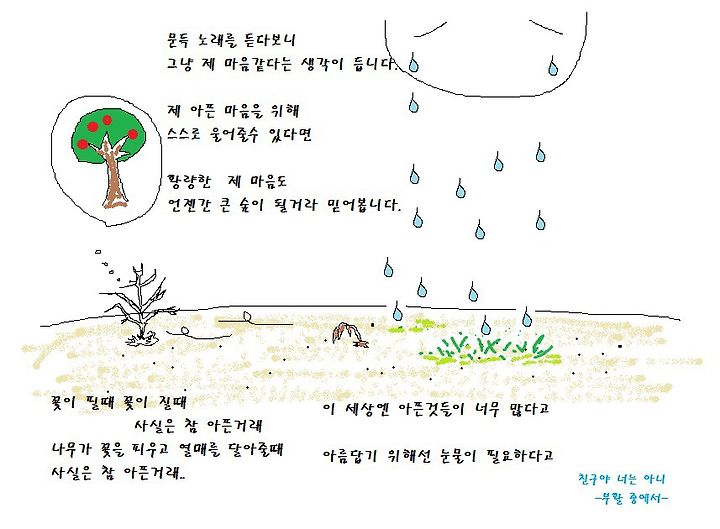 문득 노래를 듣다보니
그냥 제 마음같다는 생각이 듭니다.
제 아픈 마음을 위해
스스로 울어줄수 있다면
황량한 제 마음도
언젠간 큰 숲이 될거라 믿어봅니다.
꽃이 필때 꽃이 질때
사실은 참 아픈거래
나무가 꽃을 피우고 열매를 달아줄때
사실은 참 아픈거래..
이 세상엔 아픈것들이 너무 많다고
아름답기 위해선 눈물이 필요하다고
친구야 너는 아니
-부활 중에서-